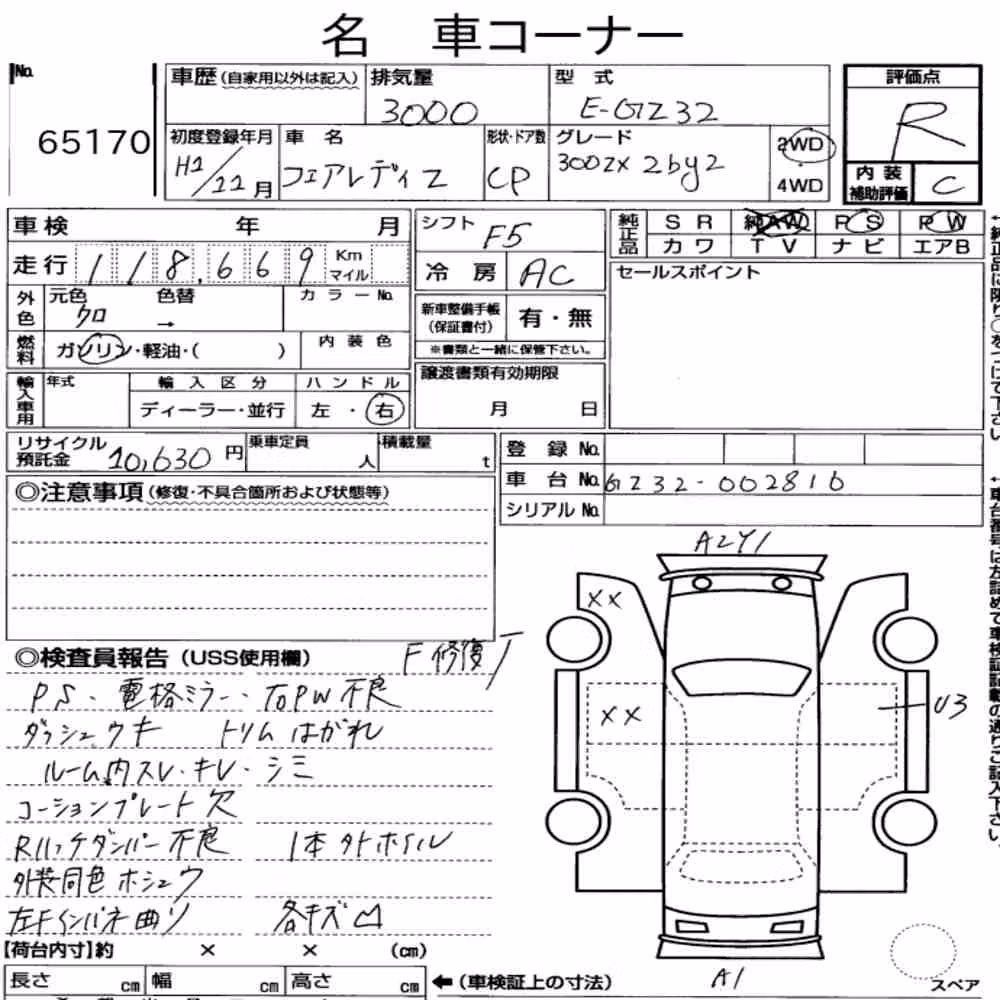 名 車コーナー
No.
65170
車歴(自家用以外は記入)
排気量
3000
型 式
E-GZ32
評価点
R
初度登録年月
H2/11月
車 名
フェアレディZ
形状・ドア数
CP
グレード
300ZX 2by2
2WD
・
4WD
内 装
補助評価
C
車 検 年 月
走 行
118,669
Km
マイル
シフト
F5
冷 房
AC
純正品
S R
純AW
P S
P W
カ ワ
T V
ナ ビ
エアB
セールスポイント
外色
元色
クロ
色替
→
カ ラ ー No.
燃料
ガソリン・軽油・( )
内 装 色
新車整備手帳
(保証書付)
有・無
※書類と一緒に保管下さい。
輸入車用
年式
輸 入 区 分
ディーラー・並行
ハ ン ド ル
左 ・ 右
譲渡書類有効期限
月 日
リサイクル
預託金
10,630円
乗車定員
人
積載量
t
登 録 No.
車 台 No.
GZ32-002816
シリアル No.
◎注意事項(修復・不具合箇所および状態等)
◎検査員報告(USS使用欄)
F修復丁
PS・電格ミラー・右PW不良
ダッシュウキ トリムはがれ
ルーム内スレ・キレ・シミ
コーションプレート欠
Rハッチダンパー不良 1本外ホイル
外装同色ホシュウ
左Fインパネ曲リ 各キズ凹
A2Y1
××
××
U3
A1
スペア
【荷台内寸】約 × × (cm)
長さ cm
幅 cm
高さ cm
←(車検証上の寸法)